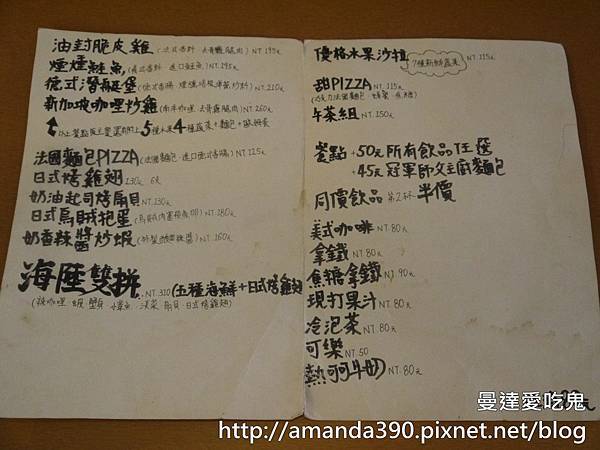 油封脆皮雞 (法式香料.去骨雞腿肉) NT.195元
煙燻鮭魚 (美式香料.進口鮭魚) NT.295元
德式潛艇堡 NT.210元
新加坡咖哩炒雞 (南洋咖哩.去骨雞腿肉) NT.260元
以上餐點 5種水果 4種蔬菜+麵包+歐姆蛋
法國麵包PIZZA (法國麵包.進口德式香腸) NT.125元
日式烤雞翅 130元 6支
奶油起司烤扇貝 NT.130元
日式烏賊抱蛋 NT.180元
奶香辣醬炒蝦 NT.160元
海陸雙拼 NT.310 (五種海鮮+日式烤雞翅
扇貝.日式烤雞翅)
優格水果沙拉 7種新鮮蔬果 NT.115元
甜PIZZA NT.115元
午茶組 NT.150元
餐點 +50元所有飲品任選
+45元冠軍師父主廚麵包
同價飲品 第2杯半價
美式咖啡 NT.80元
拿鐵 NT.80元
焦糖拿鐵 NT.90元
現打果汁 NT.80元
冷泡茶 NT.80元
可樂 NT.50
熱可可牛奶 NT.80元
曼達愛吃鬼
http://amanda390.pixnet.net/blog